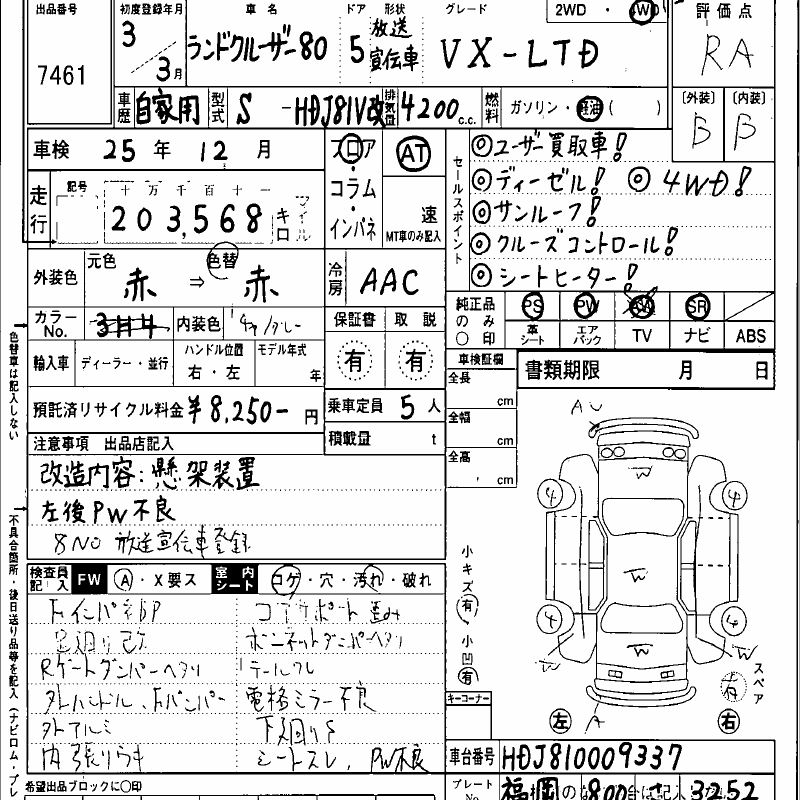 出品番号 初度登録年月 車名 ドア 形状 グレード 2WD・4WD 評価点
7461 3 3月 ランドクルーザー80 5 放送宣伝車 VX-LTD RA
車歴 自家用 型式 S-HDJ81V改 排気量 4200 c.c. 燃料 ガソリン・軽油( ) 〔外装〕 〔内装〕
B B
車検 25年 12月 フロア・コラム・インパネ AT 速 MT車のみ記入
走行 記号 十万千百十一 203,568 キロ マイル
セールスポイント
◎ユーザー買取車!
◎ディーゼル! ◎4WD!
◎サンルーフ!
◎クルーズコントロール!
◎シートヒーター!
外装色 元色 赤 ⇒ 色替 赤 冷房 AAC
カラーNo. 3H4 内装色 グレー 保証書 取説
有 有
純正品のみ○印 PS PW SR
革シート エアバック TV ナビ ABS
輸入車 ディーラー・並行 ハンドル位置 右・左 モデル年式 年
車検証欄 書類期限 月 日
全長 cm
全幅 cm
全高 cm
預託済リサイクル料金 ¥8,250- 円 乗車定員 5人
積載量 t
注意事項 出品店記入
改造内容:懸架装置
左後PW不良
8NO 放送宣伝車登録
検査員記入 FW A・X要ス 室内シート コゲ・穴・汚れ・破れ
Fインパネ コアサポート歪み
足廻り改 ボンネットダンパーヘタリ
Rゲートダンパーヘタリ テールワレ
外ハンドル、Fバンパー 電格ミラー不良
外アルミ 下廻りS
内張りウキ シートスレ、PW不良
希望出品ブロックに○印
色替車は記入しない
不具合箇所・後日送り品等を記入(ナビロム・プレ
小キズ 有 小凹 有
キーコーナー
A U
W
4 4
W
4 4
W W W
スペア 有
左 A 右
車台番号 HDJ810009337
プレートNo. 福岡 800 さ 3252